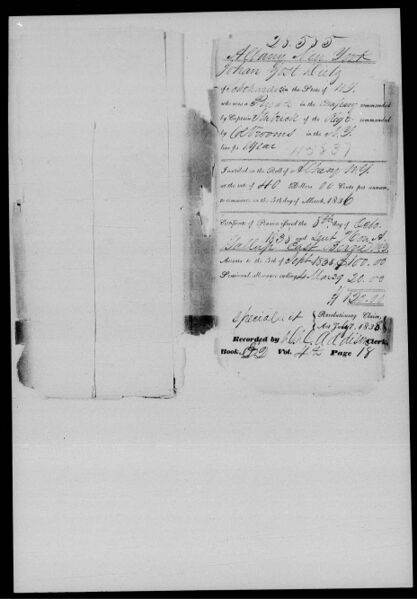 25.535
Albany New York
Johan Yost Dietz
of Schoharie in the State of N.Y.
who was a Private in the Company commanded
by Captain of the Reg't commanded
by Col. Vrooms in the N.Y.
line for 1 year
Inscribed on the Roll of Albany N.Y.
at the rate of 40 Dollars 00 Cents per annum,
to commence on the 4th day of March, 1836
Certificate of Pension issued the 8th day of Octo.
1838 and sent Hon. A.
Gallup East
Arrears to the 4th of Sept 1838 $100.00
Semi-anl. allowance ending 4 Mar 39 20.00
$120.00
Special act
Revolutionary Claim,
Act July 7, 1838
Recorded by Wm. L. Addison Clerk,
Book D2 Vol. 4½ Page 18